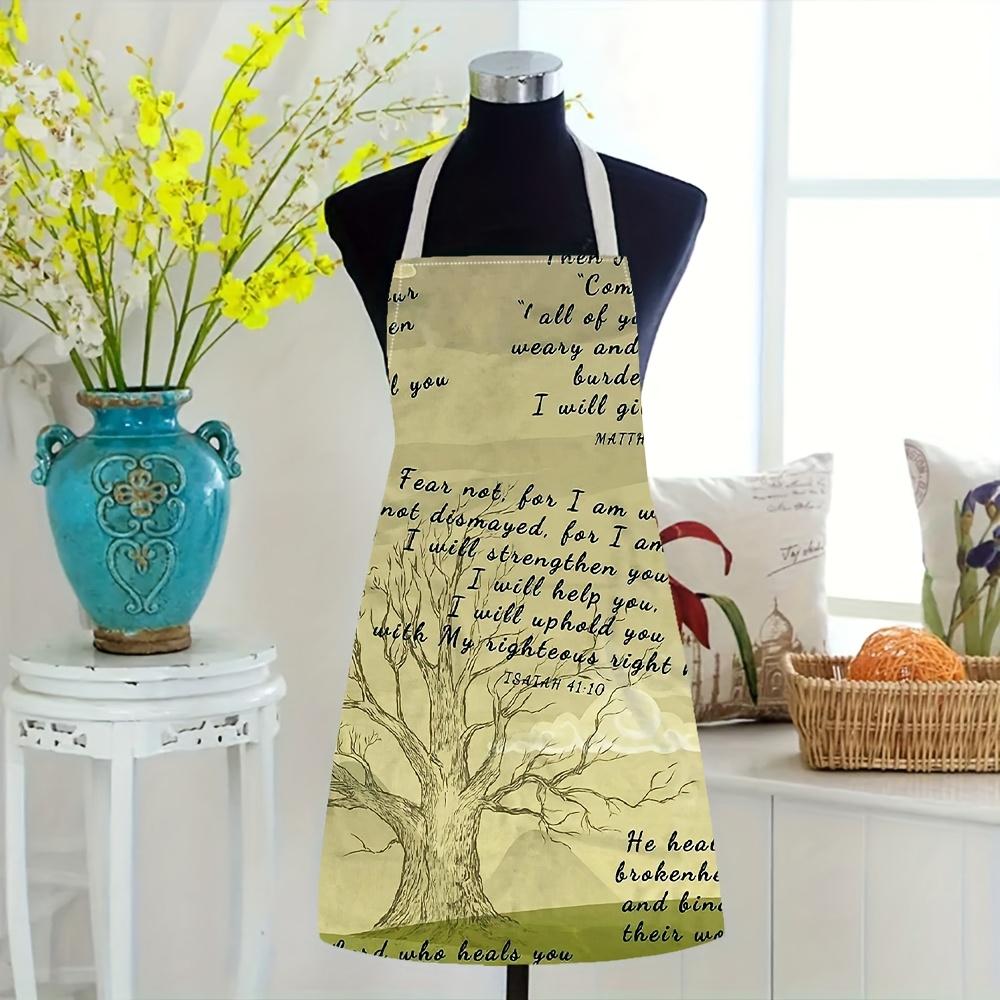 Then
"Com
"I all of yo
weary and
burde
I will gi
MATTH
ur
en
l you
Fear not, for I am w
not dismayed, for I am
I will strengthen you
I will help you,
I will uphold you
with My righteous right
ISAIAH 41:10
He heal
brokenhe
and bind
their wo
Lord who heals you